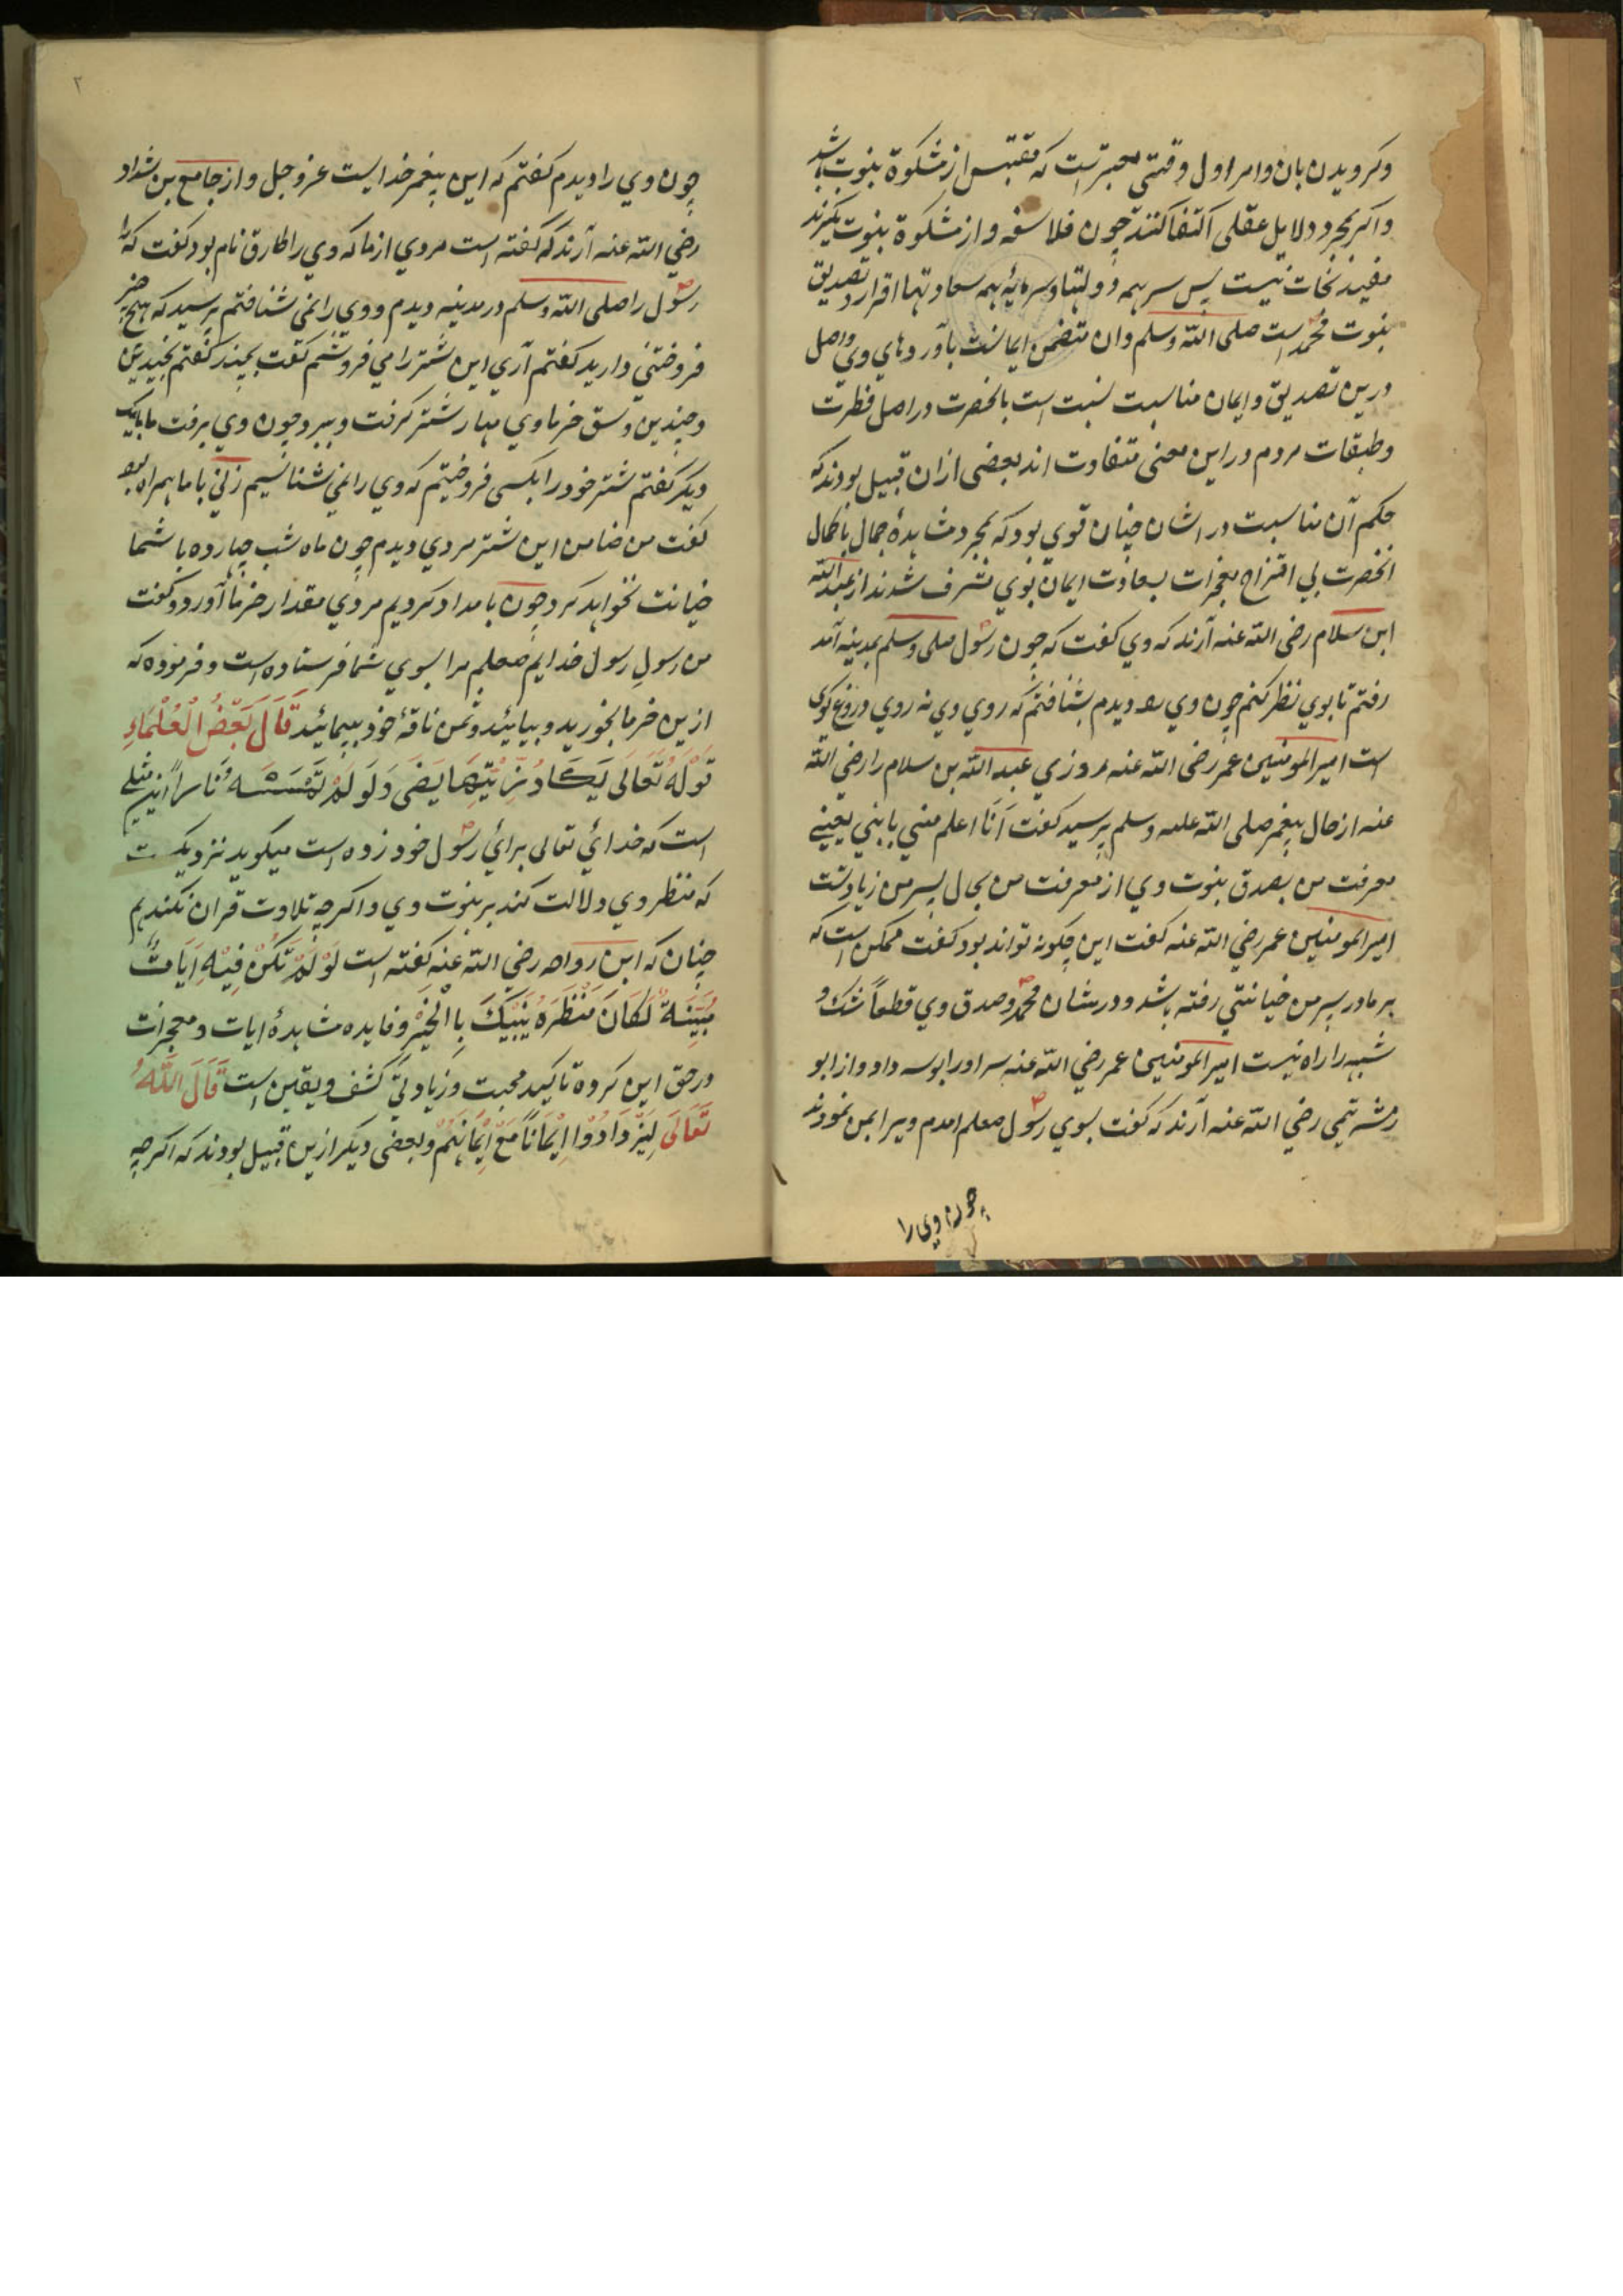 وکرویدن بان وامر اول وقتی معتبرست که مقتبس از مشکوة نبوت باشد
واکر بمجرد دلایل عقلی اکتفا کنند چون فلاسفه واز مشکوة نبوت نکیرند
مفید نجات نیست پس سر همه دولتها وسرمایۀ همه سعادتها اقرار وتصدیق
بنوت محمد است صلی الله وسلم وان متضمن ایمانست بآوردهای وی واصل
درین تصدیق وایمان مناسبت نسبت است بانحضرت در اصل فطرت
وطبقات مردم در این معنی متفاوت اند بعضی ازان قبیل بودند که
حکم آن مناسبت در اشان چنان قوی بود که بمجرد مشاهدۀ جمال باکمال
انحضرت بی اقتراح معجزات بسعادت ایمان بوی مشرف شدند از عبد الله
ابن سلام رضی الله عنه آرند که وی کفت که چون رسول صلی وسلم بمدینه آمد
رفتم تا بوی نظر کنم چون وی را دیدم بشناختم که روی وی نه روی دروغ کوی
است امیر المومنین عمر رضی الله عنه روزی عبد الله بن سلام را رضی الله
عنه از حال پیغمبر صلی الله علیه وسلم پرسید کفت اَنَا اعلم منی بابنی یعنی
معرفت من بصدق بنوت وی از معرفت من بحال پسر من زیادتست
امیر المومنین عمر رضی الله عنه کفت این چکونه تواند بود کفت ممکن است که
بر مادر پسر من خیانتی رفته باشد ودر شان محمد وصدق وی قطعاً شک و
شبهه را راه نیست امیر المومنین عمر رضی الله عنه سر او را بوسه داد واز ابو
رمشه تیمی رضی الله عنه آرند که کفت بسوی رسول صلعم امدم ویرا بمن نمودند
چون وی را
۲
چون وی را دیدم کفتم که این پیغمبر خدایست عز وجل واز جامع بن شداد
رضی الله عنه آرند که کفته است مردی از ما که وی را طارق نام بود کفت که
رسول را صلی الله وسلم در مدینه دیدم ووی را نمی شناختم پرسید که هیچ چیز
فروختنی دارید کفتم آری این شتر را می فروشم کفت بچند کفتم بچندین
وچندین وسق خرما وی مهار شتر کرفت وببرد چون وی برفت ما با یک
دیکر کفتم شتر خود را بکسی فروختیم که وی را نمی شناسیم زنی با ما همراه بود
کفت من ضامن این شتر مردی دیدم چون ماه شب چهارده با شما
خیانت نخواهد کرد چون بامداد کردیم مردی مقدار خرما آورد وکفت
من رسولِ رسول خدایم صلعم مرا بسوی شما فرستاده است وفرموده که
ازین خرما بخورید وبیائید وثمن ناقۀ خود بپیمائید قَالَ بَعْضُ الْعُلْمَاءِ
قَوْلَهُ تَعَالَی یَکَادُ زَیْتُهَا یُضَی وَلَو لَمْ تَمْسَسْهُ نَاراً این مثلی
است که خدائی تعالی برائی رسول خود زده است میکوید نزدیکست
که منظر وی دلالت کند بر نبوت وی واکر چه تلاوت قران نکند
چنان که ابن رواحه رضی الله عنه کفته است لَوْ لَمْ تَکُنْ فِیْهِ اَیَاتٌ
مُبَیِّنَةٌ لَکَانَ مَنْظَرَهُ یُنْبِیْکَ بِالْخَیْرِ وفایده مشاهدۀ ایات ومعجزات
در حق این کروه تاکید محبت وزیادتی کشف ویقین است قَالَ اللّٰهُ
تَعَالَی لِیَزْدَادُوا اِیْمَاناً مَعَ اِیْمَانِهُمْ وبعضی دیکر ازین قبیل بودند که اکر چه